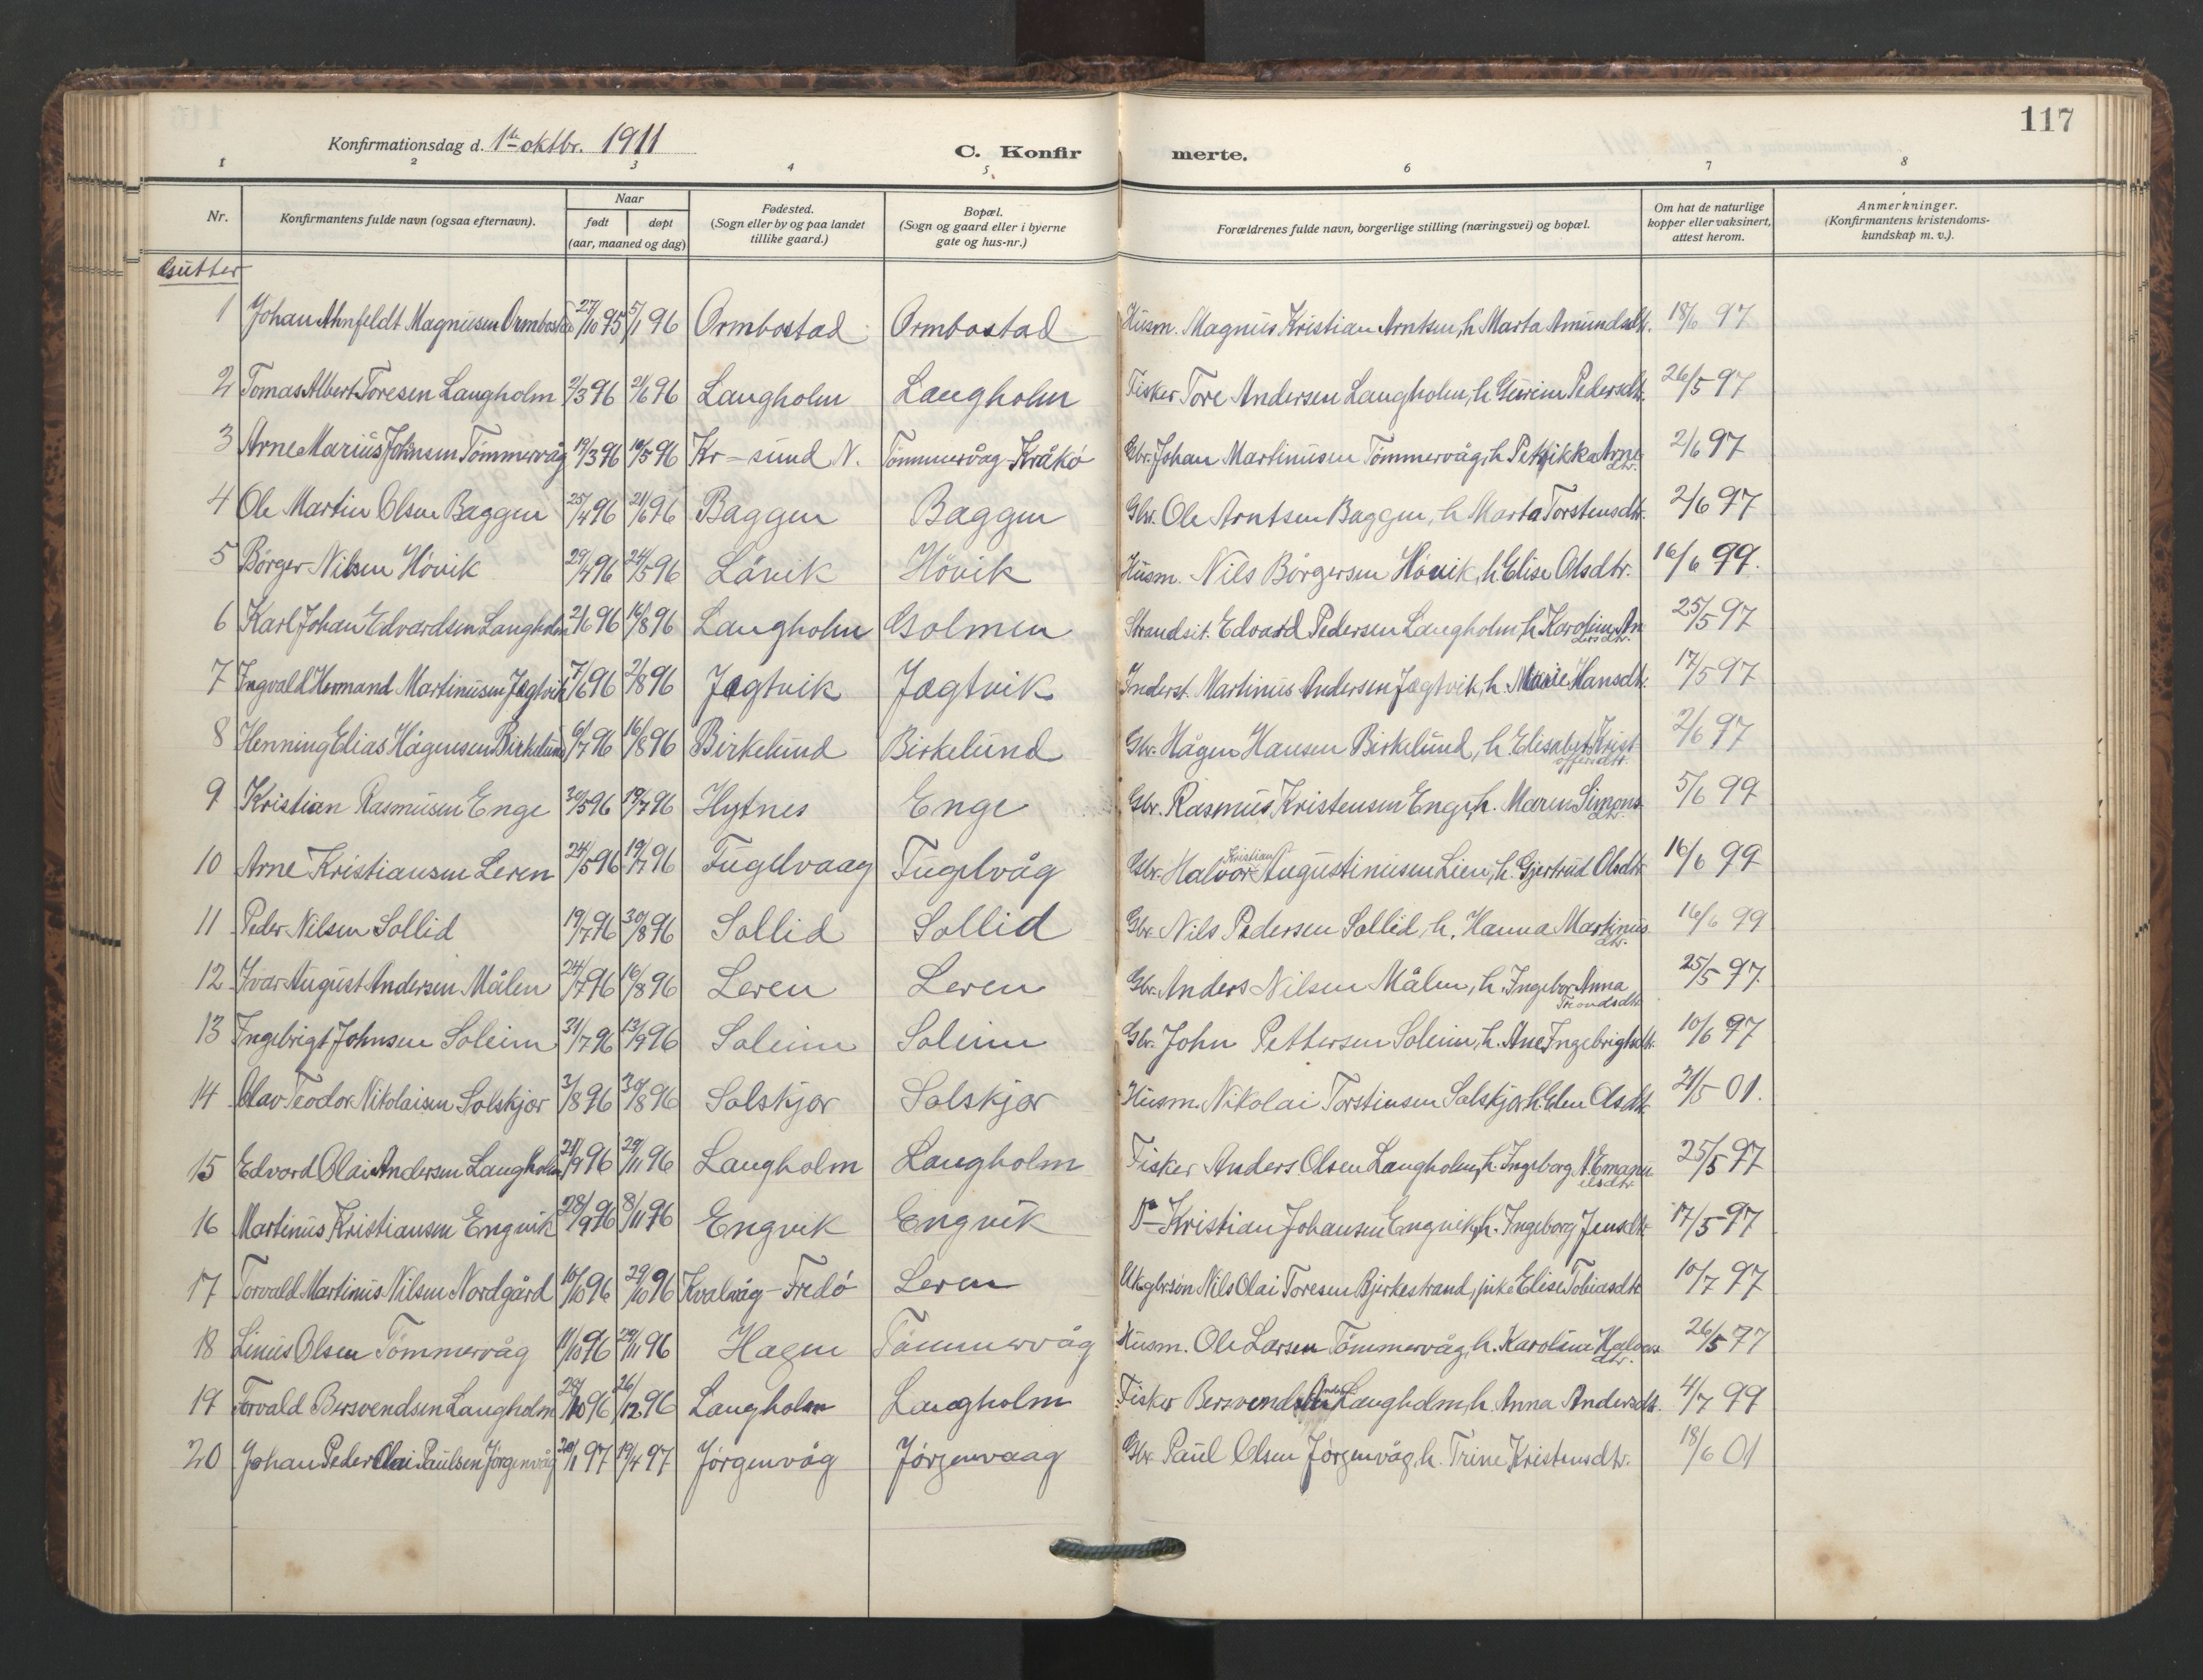 117
Konfirmationsdag d. 1ste oktbr. 1911
C. Konfirmerte.
1 2 3 4 5 6 7 8
Nr. Konfirmantens fulde navn (ogsaa efternavn). Naar født døpt (aar, maaned og dag) Fødested. (Sogn eller by og paa landet tillike gaard.) Bopæl. (Sogn og gaard eller i byerne gate og hus-nr.) Forældrenes fulde navn, borgerlige stilling (næringsvei) og bopæl. Om hat de naturlige kopper eller vaksinert, attest herom. Anmerkninger. (Konfirmantens kristendoms-kundskap m. v.).
Gutter
1 Johan Ahnfeldt Magnusen Ormbostad 27/10 95 5/1 96 Ormbostad Ormbostad Husm. Magnus Kristian Arntsen, h. Marta Amundsdtr. 18/6 97
2 Tomas Albert Toresen Langholm 2/3 96 21/6 96 Langholm Langholm Fisker Tore Andersen Langholm, h. Gurine Pedersdtr. 26/5 97
3 Arne Marius Johnsen Tömmervåg 19/3 96 10/5 96 Kr-sund N. Tömmervåg Kråkö Gbr. Johan Martinusen Tömmervåg, h. Petrikka Arnedtr. 2/6 97
4 Ole Martin Olsen Baggen 25/4 96 21/6 96 Baggen Baggen Gbr. Ole Arntsen Baggen, h. Marta Torstensdtr. 2/6 97
5 Börger Nilsen Hövik 29/4 96 24/5 96 Lövik Hövik Husm. Nils Börgersen Hövik, h. Elise Olsdtr. 16/6 99.
6 Karl Johan Edvardsen Langholm 2/6 96 16/8 96 Langholm Golmen Strandsit. Edvard Pedersen Langholm, h. Karoline Andersdtr. 25/5 97
7 Ingvald Hermand Martinusen Jægtvik 7/6 96 2/8 96 Jægtvik Jægtvik Inderst. Martinus Andersen Jægtvik, h. Marie Hansdtr. 17/5 97
8 Henning Elias Hågensen Birkelund 6/7 96 16/8 96 Birkelund Birkelund Gbr. Hågen Hansen Birkelund, h. Elisabet Kristoffersdtr. 2/6 97
9 Kristian Rasmusen Enge 30/5 96 19/7 96 Hytnes Enge Gbr. Rasmus Kristensen Enge, h. Maren Simonsdtr. 5/6 99
10 Arne Kristiansen Leren 24/5 96 19/7 96 Fugelvaag Fugelvåg Gbr. Halvor Kristian Augustinusen Lien, h. Gjertrud Olsdtr. 16/6 99
11 Peder Nilsen Sollid 19/7 96 30/8 96 Sollid Sollid Gbr. Nils Pedersen Sollid, h. Hanna Martinusdtr. 16/6 99
12 Ivar August Andersen Målen 24/7 96 16/8 96 Leren Leren Gbr. Anders Nilsen Målen, h. Ingebor Anna Trondsdtr. 25/5 97.
13 Ingebrigt Johnsen Soleim 31/7 96 13/9 96 Soleim Soleim Gbr. John Pettersen Soleim, h. Ane Ingebrigtsdtr. 10/6 97
14 Olav Teodor Nikolaisen Solskjær 3/8 96 30/8 96 Solskjær Solskjær Husm. Nikolai Torstensen Solskjær h. Elen Olsdtr. 21/5 01.
15 Edvard Olai Andersen Langholm 21/9 96 29/11 96 Langholm Langholm Fisker Anders Olsen Langholm, h. Ingeborg N. Emanuelsdtr. 25/5 97
16 Martinus Kristiansen Engvik 28/9 96 8/11 96 Engvik Engvik Do Kristian Johansen Engvik, h. Ingeborg Jensdtr. 17/5 97
17 Torvald Martinus Nilsen Nordgård 10/10 96 29/10 96 Kvalvåg-Fredö Leren Ukgbrsön Nils Olai Toresen Bjerkestrand, pike Elise Tobiasdtr. 10/7 97
18 Linus Olsen Tömmervåg 11/10 96 29/11 96 Hagen Tömmervåg Husm. Ole Larsen Tömmervåg, h. Karolina Halvorsdtr. 26/5 97
19 Torvald Bersvendsen Langholm 28/10 96 26/12 96 Langholm Langholm Fisker Bersvend Anders. Langholm, h. Anna Andersdtr. 4/7 99
20 Johan Peder Olai Paulsen Jörgenvåg 20/1 97 19/4 97 Jörgenvåg Jörgenvaag Gbr Paul Olsen Jörgenvåg, h. Trine Kristensdtr. 18/6 01